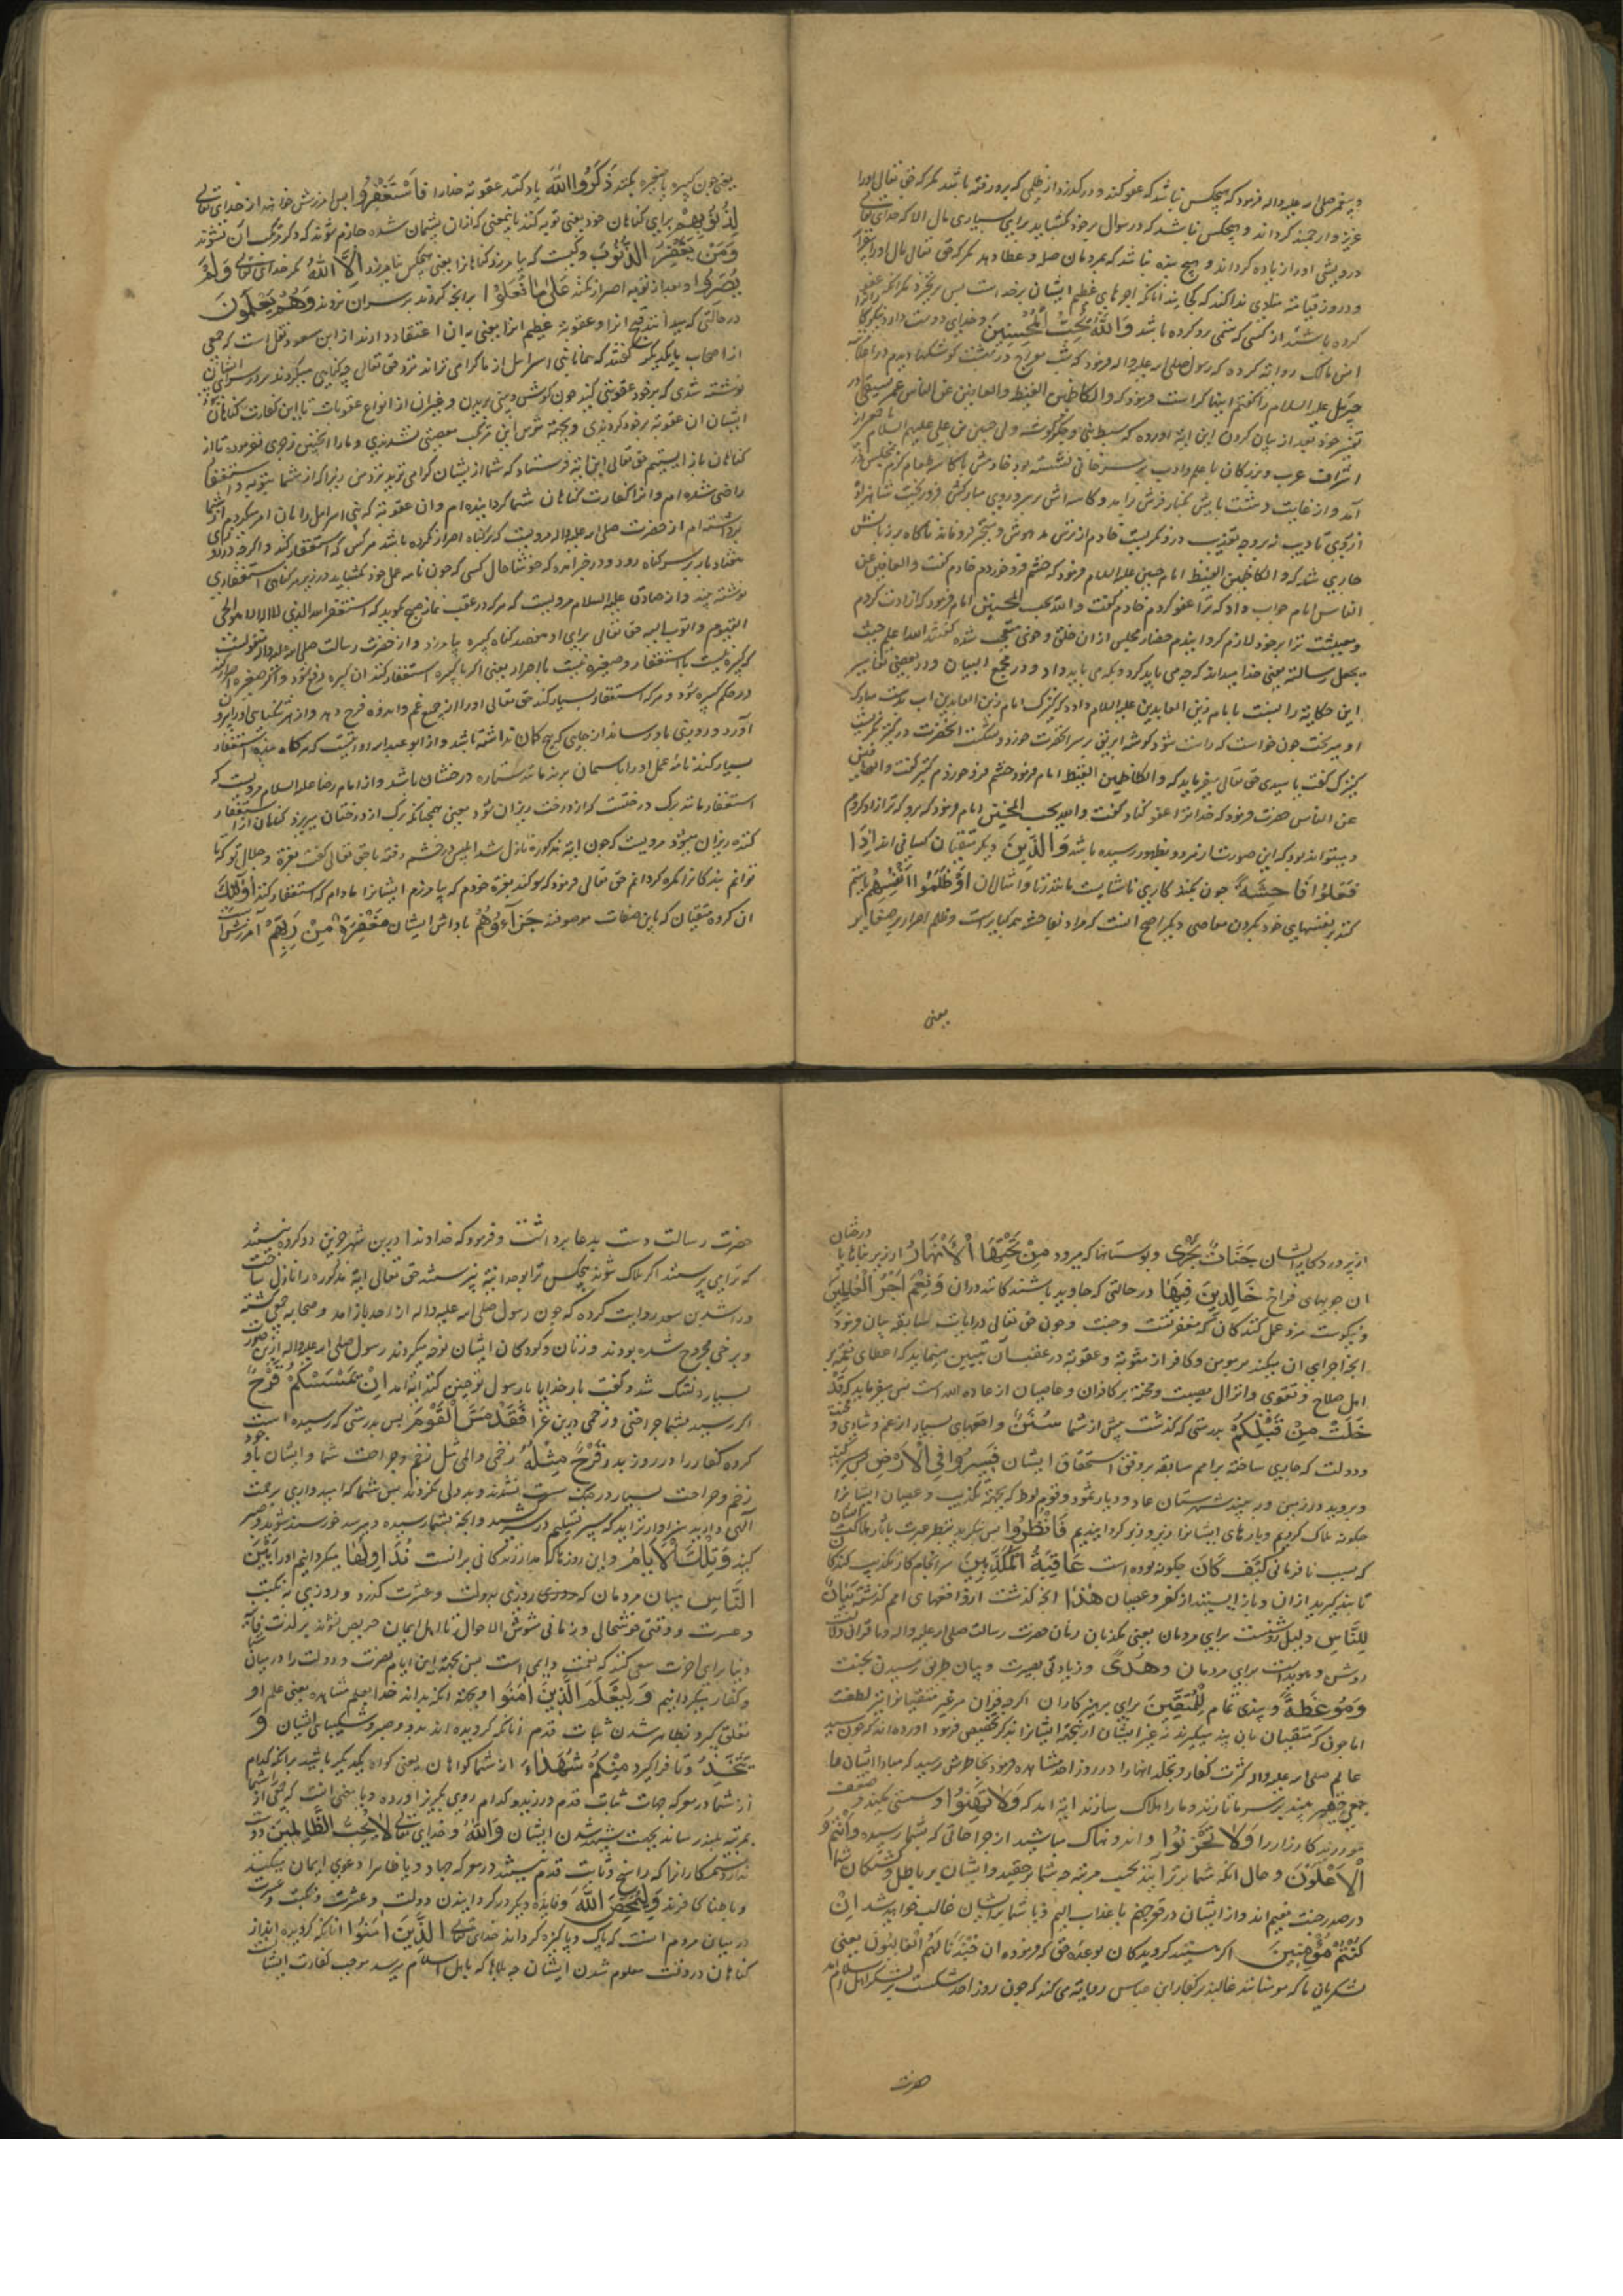 و پیغمبر صلی الله علیه واله فرمود که هیچکس نباشد که عفو کند و درگذرد از ظلمی که برو رفته باشد مگر که حق تعالی او را
عزیز و ارجمند گرداند و هیچکس نباشد که در سؤال بر خود بگشاید برای بسیاری مال الا که خدای تعالی
درویشی او را زیاده گرداند و هیچ بنده نباشد که بمردمان صله و عطا دهد مگر که حق تعالی مال او را
و در روز قیامة منادی ندا کند که کجایند آنانکه اجرهای عظیم ایشان بر خداست پس برنخیزد مگر آنکه عفو
کرده باشد از کسی که ستمی برو کرده باشد وَاللّٰهُ يُحِبُّ الْمُحْسِنِينَ و خدای دوست دارد نیکوکا رانرا
انس مالک روایة کرده که رسول صلی الله علیه واله فرمود که شب معراج در بهشت کوشکها دیدم
جبرئیل علیه السلام را گفتم اینها کراست فرمود که والکاظمین الغیظ والعافین عن الناس
تفسیر خود بعد از بیان کردن این ایة اورده که سبط نبی و جگرگوشه ولی حسین بن علی علیهم السلام
اشراف عرب و بزرگان با علم و ادب بر سر خانی نشسته بود خادمش با کاسه طعام گرم بمجلس در
آمد و از غایت دهشت پایش بکنار فرش راید و کاسه اش بر سر و روی مبارکش فرو ریخت شاهزاده
از روی تادیب نه بر وجه تعذیب درو نگریست خادم از ترس مدهوش و متحیر فرو ماند ناگاه بر زبانش
جاری شد که والکاظمین الغیظ امام حسین علیه السلام فرمود که خشم فرو خوردم خادم گفت والعافین عن
الناس امام جواب داد که ترا عفو کردم خادم گفت والله یحب المحسنین امام فرمود که ازادت کردم
و معیشت ترا بر خود لازم گردانیدم حضار مجلس از ان خلق و خوی متعجب شده گفتند الله اعلم حیث
یجعل رسالته یعنی خدا میداند که چه می باید کرد و بکه می باید داد و در مجمع البیان و در بعضی تفاسیر
این حکایة را نسبت بامام زین العابدین علیه السلام داده که کنیزک امام زین العابدین اب بدست مبارک
او میریخت چون خواست که راست شود گوشه ابریق بر سر انحضرت خورد و بشکست انحضرت در کنیزک نگریست
کنیزک گفت یا سیدی حق تعالی میفرماید که والکاظمین الغیظ امام فرمود خشم فرو خوردم کنیزک گفت والعافین
عن الناس حضرت فرمود که خدا ترا عفو کناد گفت والله یحب المحسنین امام فرمود که برو که ترا ازاد کردم
و میتواند بود که این صورت از هر دو بظهور رسیده باشد وَالَّذِينَ و دیگر متقیان کسانی اند إِذَا
فَعَلُوا فَاحِشَةً چون بکنند کاری ناشایست مانند زنا و امثال ان أَوْ ظَلَمُوا أَنْفُسَهُمْ یا ستم
کنند بر نفسهای خود بکردن معاصی دیگر اصح انست که مراد بفاحشه همه کبایرست و ظلم اصرار بر صغایر
یعنی
یعنی چون کبیره یا صغیره بکنند ذَكَرُوا اللّٰهَ یاد کنند عقوبة خدا را فَاسْتَغْفَرُوا پس امرزش خواهند از خدای تعالی
لِذُنُوبِهِمْ برای گناهان خود یعنی توبه کنند بانمعنی که ازان پشیمان شده جازم شوند که دیگر مرتکب ان نشوند
وَمَنْ يَغْفِرُ الذُّنُوبَ و کیست که بیامرزد گناهانرا یعنی هیچکس نیامرزد إِلَّا اللّٰهُ مگر خدای تعالی وَلَمْ
يُصِرُّوا و بعد از توبه اصرار نکنند عَلَىٰ مَا فَعَلُوا برانچه کردند بر سر ان نروند وَهُمْ يَعْلَمُونَ
در حالتی که میدانند قبح انرا و عقوبة عظیم انرا یعنی بدان اعتقاد دارند از ابن مسعود نقل است که جمعی
از اصحاب با یکدیگر گفتند که همانا بنی اسرائیل از ما گرامی تراند نزد حق تعالی چه گناهی میکردند بر در سرای ایشان
نوشته شدی که بر خود عقوبتی کنید چون گوش و بینی بریدن و غیر ان از انواع عقوبات تا این کفارت گناهان
ایشان ان عقوبة بر خود کردندی و بجهة ترس این مرتکب معصیتی نشدندی و ما را اینچنین زجری نفرموده تا از
گناهان باز ایستیم حق تعالی این ایة فرستاد که شما از ایشان گرامی ترید نزد من زیرا که از شما بتوبه و استغفار
راضی شده ام و انرا کفارت گناهان شما گردانیده ام و ان عقوبة که بنی اسرائیل را بان امر میکردم از شما
برداشته ام از حضرت صلی الله علیه واله مرویست که بر گناه اصرار نکرده باشد هر کس که استغفار کند و اگر چه در روزی
هفتاد بار بر سر گناه رود و در خبر امده که خوشا حال کسی که چون نامه عمل خود بگشاید در زیر هر گناهی استغفاری
نوشته بیند و از صادق علیه السلام مرویست که هر که در عقب نماز صبح بگوید که استغفر الله الذی لا اله الا هو الحی
القیوم واتوب الیه حق تعالی برای او هفصد گناه کبیره بیامرزد و از حضرت رسالت صلی الله علیه واله منقولست
که کبیره نیست با استغفار و صغیره نیست با اصرار یعنی اگر با کبیره استغفار کند ان کبیره رفع شود و اگر بر صغیره اصرار کند
در حکم کبیره شود و هر که استغفار بسیار کند حق تعالی او را از جمیع غم و اندوه فرح دهد و از هر تنگیهای او را بیرون
آورد و روزی باو رساند از جایی که هیچ گمان نداشته باشد و از ابو عبدالله روایتست که هر گاه بنده استغفار
بسیار کند نامه عمل او را باسمان برند مانند ستاره درخشان باشد و از امام رضا علیه السلام مرویست که
استغفار مانند برگ درختست که از درخت ریزان شود یعنی همچنانکه برگ از درختان میریزد گناهان از استغفار
کننده ریزان میشود مرویست که چون ایة مذکوره نازل شد ابلیس در خشم رفته با حق تعالی گفت بعزة و جلال تو که تا
توانم بندگانرا گمره گردانم حق تعالی فرمود که سوگند بعزة خودم که بیامرزم ایشانرا مادام که استغفار کنند أُولٰئِكَ
ان گروه متقیان که باین صفات موصوفند جَزَآءُهُمْ پاداش ایشان مَغْفِرَةٌ مِنْ رَبِّهِمْ آمرزش است
از پروردگار ایشان جَنَّاتٌ تَجْرِي و بوستانها که میرود مِنْ تَحْتِهَا الْأَنْهَارُ از زیر بناها یا درختان
ان جویهای فراخ خَالِدِينَ فِيهَا در حالتی که جاوید باشندگانند دران وَنِعْمَ أَجْرُ الْعَامِلِينَ
و نیکوست مزد عمل کنندگان که مغفرتست و جنت و چون حق تعالی در ایات سابقه بیان فرمود
انچه اجرای ان میکند بر مومن و کافر از مثوبة و عقوبة در عقب ان تبیین مینماید که اعطای نعمة بر
اهل صلاح و تقوی و انزال مصیبت و محنة بر کافران و عاصیان از عاده الله است پس میفرماید که قَدْ
خَلَتْ مِنْ قَبْلِكُمْ بدرستی که گذشت پیش از شما سُنَنٌ واقعهای بسیار از غم و شادی و محنة
و دولت که جاری ساخته بر امم سابقه بر وفق استحقاق ایشان فَسِيرُوا فِي الْأَرْضِ پس سیر کنید
و بروید در زمین و ببینید شهرستان عاد و دیار ثمود و قوم لوط که بجهة تکذیب و عصیان ایشانرا
چگونه هلاک کردیم و دیارهای ایشانرا زیر و زبر گردانیدیم فَانْظُرُوا پس بنگرید بنظر عبرت باثار هلاکت ایشان
که بسبب نافرمانی كَيْفَ كَانَ چگونه بوده است عَاقِبَةُ الْمُكَذِّبِينَ سرانجام کار تکذیب کنندگان
تا پند گیرید ازان و باز ایستید از کفر و عصیان هٰذَا انچه گذشت از واقعهای امم گذشته بَيَانٌ
لِلنَّاسِ دلیل روشنست برای مردمان یعنی مکذبان زمان حضرت رسالت صلی الله علیه واله و یا قران دلالت
روشن و هویداست برای مردمان وَهُدًى و زیادتی بصیرت و بیان طریق رسیدن بجنت
وَمَوْعِظَةٌ و پندی تمام لِلْمُتَّقِينَ برای پرهیزکاران اگرچه قران مر غیر متقیانرا نیز لطفست
اما چون که متقیان بان پند میگیرند نه غیر ایشان از نجهة ایشانرا بذکر تخصیص فرمود اورده اند که چون سید
عالم صلی الله علیه واله کثرت کفار و تجلد انها را در روز احد مشاهده فرمود بخاطرش رسید که مبادا ایشان ما
جمعی حقیر ببینند بر سر ما تازند و ما را هلاک سازند ایة امد که وَلَا تَهِنُوا و سستی مکنید و ضعف
مورزید کارزار را وَلَا تَحْزَنُوا و اندوهناک مباشید از جراحاتی که بشما رسیده وَأَنْتُمُ
الْأَعْلَوْنَ و حال انکه شما برترانید بحسب مرتبه چه شما بر حقید و ایشان بر باطل و کشتگان شما
در صدر جنت مقیم اند و از ایشان در قعر جهنم با عذاب الیم و یا شما بر ایشان غالب خواهید شد إِنْ
كُنْتُمْ مُؤْمِنِينَ اگر هستید گرویدگان بوعده حق که فرموده ان جندنا لهم الغالبون یعنی
لشکریان ما که مومنانند غالبند بر کفار ابن عباس روایة می کند که چون روز احد شکست بر لشکر اهل اسلام امد
حضرت
حضرت رسالت دست بدعا برداشت و فرمود که خداوندا درین شهر جز این دو گروه نیستند
که ترا می پرستند اگر هلاک شوند هیچکس ترا بوحدانیة نپرستد حق تعالی ایة مذکوره را نازل ساخت
و راشد بن سعد روایت کرده که چون رسول صلی الله علیه واله از احد باز امد و صحابه جمعی کشته
و برخی مجروح شده بودند و زنان و کودکان ایشان نوحه میکردند رسول صلی الله علیه واله ازین صورت
بسیار دلتنگ شد و گفت بار خدایا با رسول تو چنین کنند ایة امد إِنْ يَمْسَسْكُمْ قَرْحٌ
اگر رسید بشما جراحتی و زخمی درین غزا فَقَدْ مَسَّ الْقَوْمَ پس بدرستی که رسیده است
گروه کفار را در روز بدر قَرْحٌ مِثْلُهُ زخمی و المی مثل زخم و جراحت شما و ایشان با وجود
زخم و جراحت بسیار در جنگ سست نشدند و بددلی نکردند پس شما که امیدواری برحمت
الهی دارید سزاوارترآید که سپر تسلیم در سر کشید و بانچه بشما رسیده و میرسد خورسند شوید و صبر
کنید وَتِلْكَ الْأَيَّامُ و این روزها که مدار زندگانی برانست نُدَاوِلُهَا میگردانیم او را بَيْنَ
النَّاسِ میان مردمان که روزی بدولت و عشرت گذرد و روزی به نکبت
و عسرت و وقتی خوشحالی و زمانی مشوش الاحوال تا اهل ایمان حریص نشوند بر لذت فانیه
دنیا برای اخرت سعی کنند که نعمت دایمی است پس بجهة این ایام نصرت و دولت را در میان شما
و کفار میگردانیم وَلِيَعْلَمَ الَّذِينَ آمَنُوا و بجهة انکه بداند خدا بعلم مشاهده یعنی علم او
تعلق گیرد بظاهر شدن ثبات قدم انانکه گرویده اند بدو و صبر و شکیبای ایشان وَ
يَتَّخِذَ و تا فراگیرد مِنْكُمْ شُهَدَآءَ از شما گواهان یعنی گواه یکدیگر باشید برانکه کدام
از شما در معرکه جهات ثبات قدم ورزید و کدام روی بگریز اورده و یا معنی انست که جمعی از شما را
بمرتبه بلند رساند بجهت شهید شدن ایشان وَاللّٰهُ و خدای تعالی لَا يُحِبُّ الظَّالِمِينَ دوست
ندارد ستمکارانرا که راسخ و ثابت قدم نیستند در معرکه جهاد و یا ظاهرا دعوی ایمان میکنند
و باطنا کافرند وَلِيُمَحِّصَ اللّٰهُ و فایده دیگر در گردانیدن دولت و عشرت و نکبت و عسرت
در میان مردم انست که پاک و پاکیزه گرداند خدای تعالی الَّذِينَ آمَنُوا انانکه گرویده اند از
گناهان در وقت معلوم شدن ایشان چه بلاها که باهل اسلام میرسد موجب کفارت ایشانست